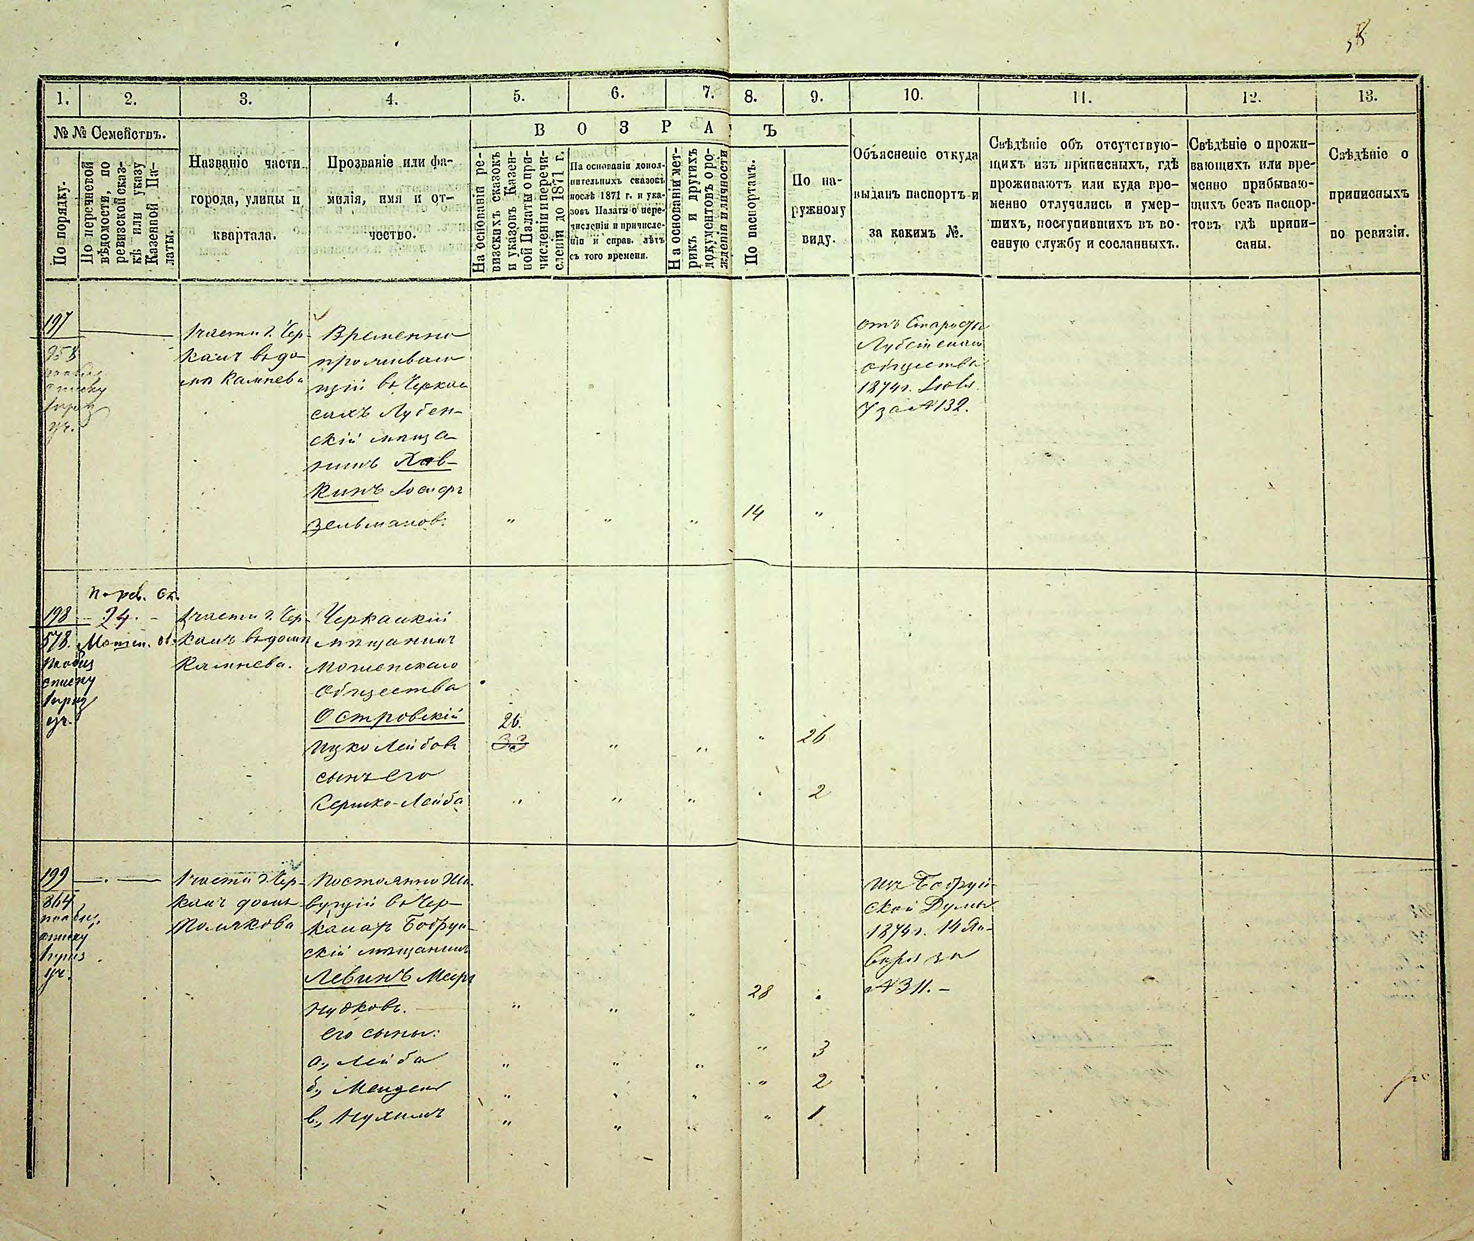 58
1. 2. 3. 4. 5. 6. 7. 8. 9. 10. 11. 12. 13.
№ № Семействъ.
По порядку.
По перечневой
вѣдомости, по
ревизской сказ-
кѣ или указу
Казенной Па-
латы.
Названіе части
города, улицы и
квартала.
Прозваніе или фа-
милія, имя и от-
чество.
ВОЗРАСТЪ
На основаніи ре-
визскихъ сказокъ
и указовъ Казен-
ной Палаты о при-
численіи и перечи-
сленіи до 1871 г.
На основаніи допол-
нительныхъ сказокъ
послѣ 1871 г. и ука-
зовъ Палаты о пере-
численіи и причисле-
ніи и справ. лѣтъ
съ того времени.
На основаніи мет-
рик. и другихъ
документовъ о ро-
жденіи и личности
По паспортамъ.
По на-
ружному
виду.
Объясненіе откуда
выданъ паспортъ и
за какимъ №.
Свѣдѣніе объ отсутствую-
щихъ изъ приписныхъ, гдѣ
проживаютъ или куда вре-
менно отлучились и умер-
шихъ, поступившихъ въ во-
енную службу и сосланныхъ.
Свѣдѣніе о прожи-
вающихъ или вре-
менно прибываю-
щихъ безъ паспор-
товъ гдѣ припи-
саны.
Свѣдѣніе о
приписныхъ
по ревизіи.
197
958
списку
уч.
1 части г. Чер-
касъ въ до-
мѣ Камнева
Временно
проживаю
щій въ Черкас
сахъ Лубен-
скій мѣща-
нинъ Хав-
кинъ Іосифъ
Зельманов.
" " " 14 "
отъ Старосты
Лубенскаго
общества
1874 г. Іюля
7 за № 132.
по рев. ск.
198 24.
578.
списку
уч.
1 части г. Чер-
касъ въ домѣ
Камнева.
Черкаскій
мѣщанинъ
общества
Островскій
Ицко Лейбовъ
26.
33
" " " 26
сынъ его
Бершко-Лейба
" " " " 2
199
864
списку
уч.
1 части г. Чер-
касъ домъ
Полякова
Постоянно жи-
вущій въ Чер-
касахъ Бобруй-
скій мѣщанинъ
Левинъ Мееръ
Нудковъ.
" " " 28
его сыны:
а., Лейба " " " " 3
б., Мендель " " " " 2
в., Нухимъ " " " " 1
изъ Бобруй-
ской Думы
1874 г. 14 Ян-
варя за
№ 311.-